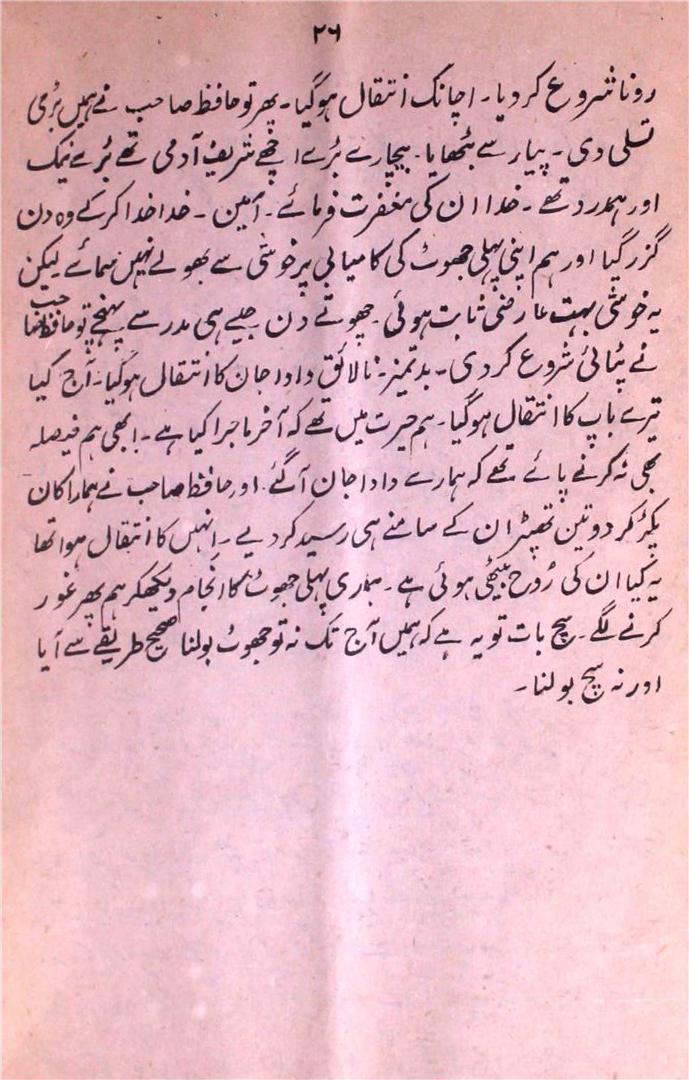 ۲۶
رونا شروع کردیا۔ اچانک انتقال ہوگیا۔ پھر تو حافظ صاحب نے ہمیں بڑی
تسلی دی۔ پیار سے بٹھایا۔ بیچارے بڑے اچھے شریف آدمی تھے بڑے نیک
اور ہمدرد تھے۔ خدا ان کی مغفرت فرمائے۔ آمین۔ خدا خدا کرکے وہ دن
گزر گیا اور ہم اپنی پہلی جھوٹ کی کامیابی پر خوشی سے پھولے نہیں سمائے لیکن
یہ خوشی بہت عارضی ثابت ہوئی۔ چھوتے دن جیسے ہی مدرسے پہنچے تو حافظ صاحب
نے پٹائی شروع کردی۔ بدتمیز۔ نالائق دادا جان کا انتقال ہوگیا۔ آج کیا
تیرے باپ کا انتقال ہوگیا۔ ہم حیرت میں تھے کہ آخر ماجرا کیا ہے۔ ابھی ہم فیصلہ
بھی نہ کرنے پائے تھے کہ ہمارے دادا جان آگئے۔ اور حافظ صاحب نے ہمارا کان
پکڑ کر دو تین تھپڑ ان کے سامنے ہی رسید کردیے۔ انہیں کا انتقال ہوا تھا
یہ کیا ان کی رُوح بیٹھی ہوئی ہے۔ ہماری پہلی جھوٹ کا انجام دیکھکر ہم پھر غور
کرنے لگے۔ سچ بات تو یہ ہے کہ ہمیں آج تک نہ تو جھوٹ بولنا صحیح طریقے سے آیا
اور نہ سچ بولنا۔